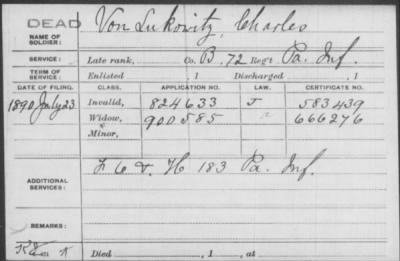 DEAD
NAME OF SOLDIER: Von Lukowitz, Charles
SERVICE: Late rank, Co. B, 72 Regt. Pa. Inf.
TERM OF SERVICE: Enlisted , 1 Discharged , 1
DATE OF FILING. CLASS. APPLICATION NO. LAW. CERTIFICATE NO.
1890 July 23 Invalid, 824633 J 583439
Widow, 900585 " 666276
Minor,
ADDITIONAL SERVICES: F 6 & H 183 Pa. Inf.
REMARKS:
Died , 1 , at